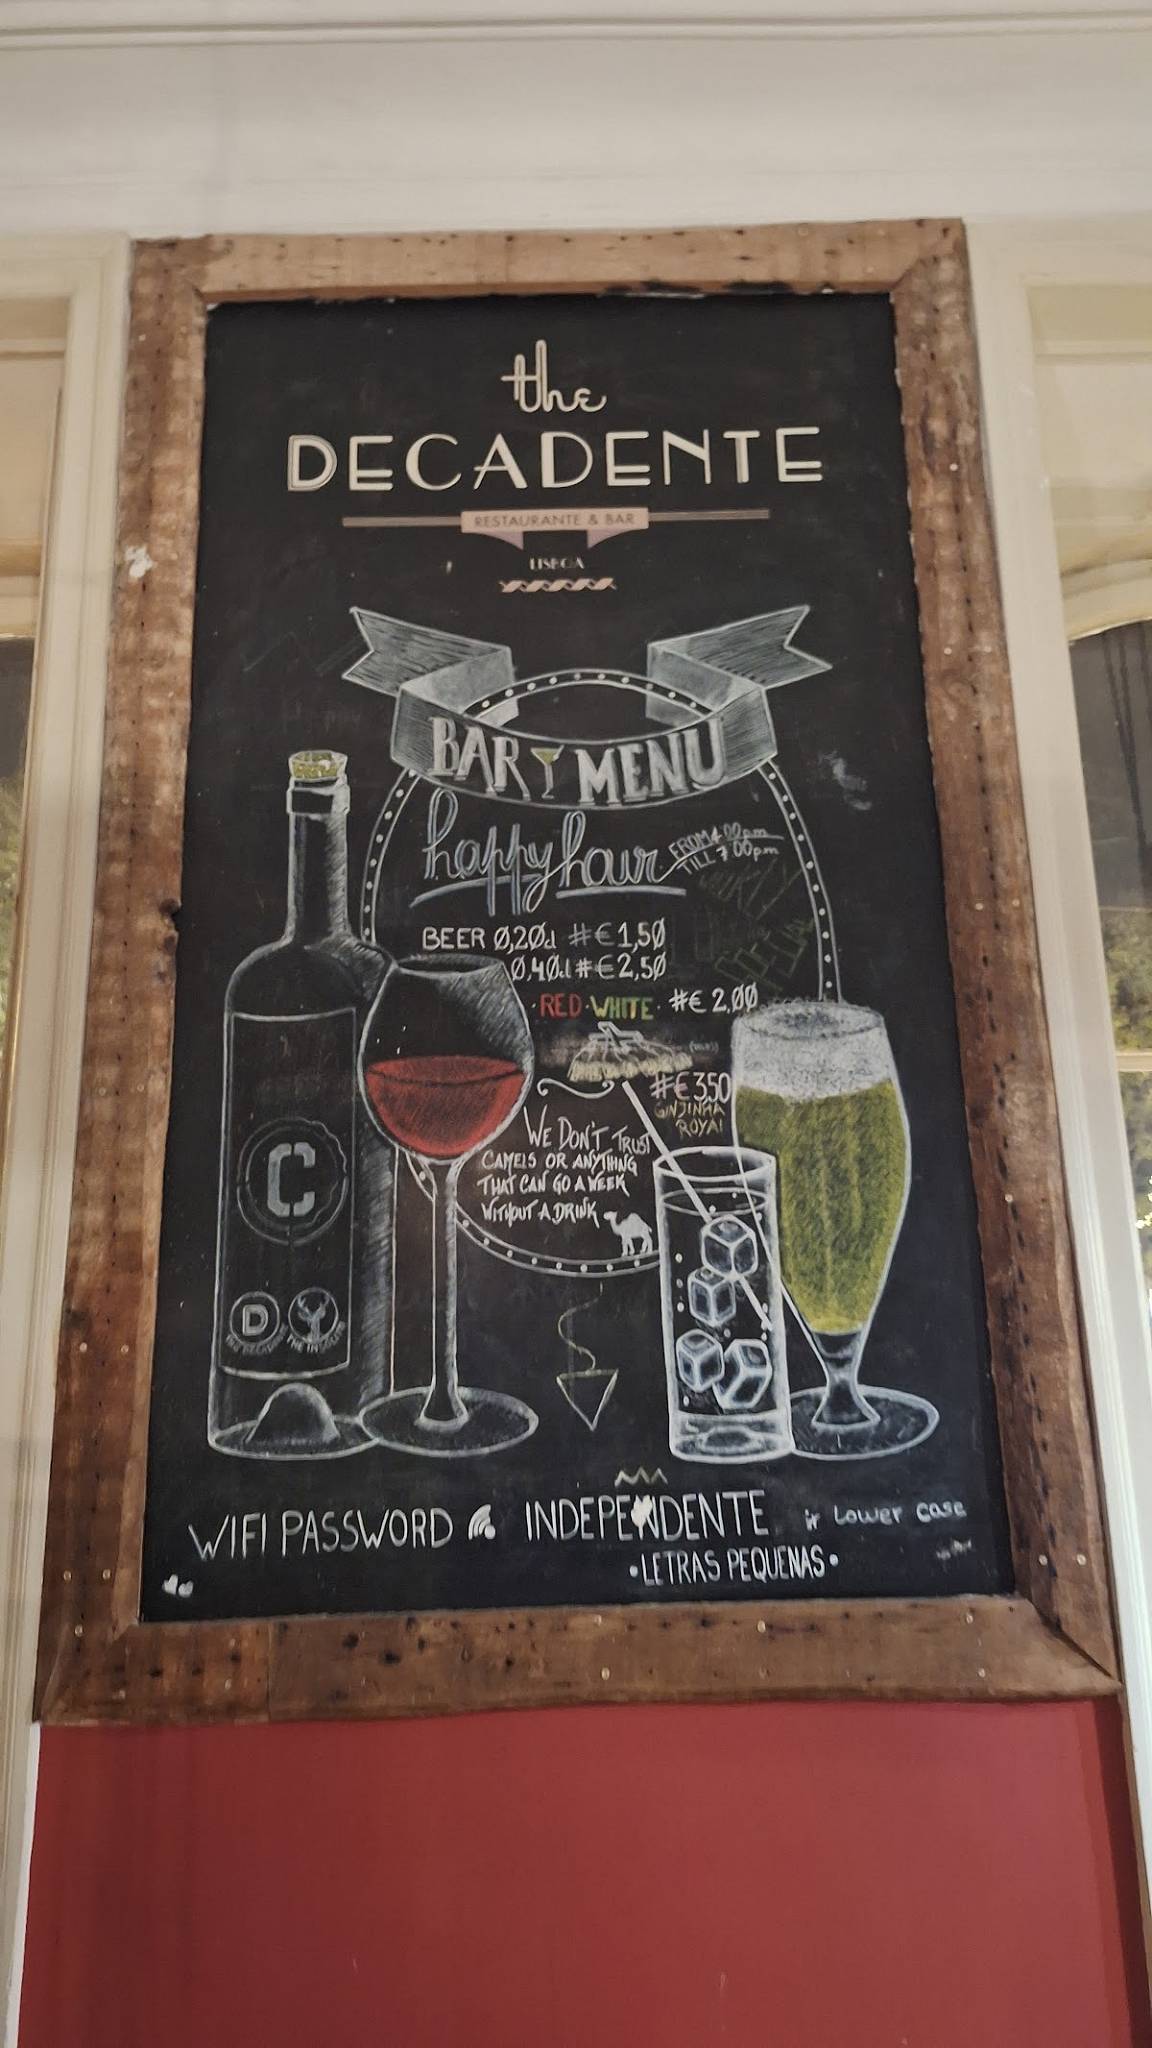 the
DECADENTE
RESTAURANTE & BAR
LISBOA
BAR MENU
happy hour
FROM 4:00pm
TILL 7:00pm
BEER 0,20cl #€1,50
0,40cl #€2,50
·RED·WHITE· #€2,00
#€3,50
GINJINHA
ROYAL
WE DON'T TRUST
CAMELS OR ANYTHING
THAT CAN GO A WEEK
WITHOUT A DRINK
C
D
WIFI PASSWORD INDEPENDENTE lower case
•LETRAS PEQUENAS•